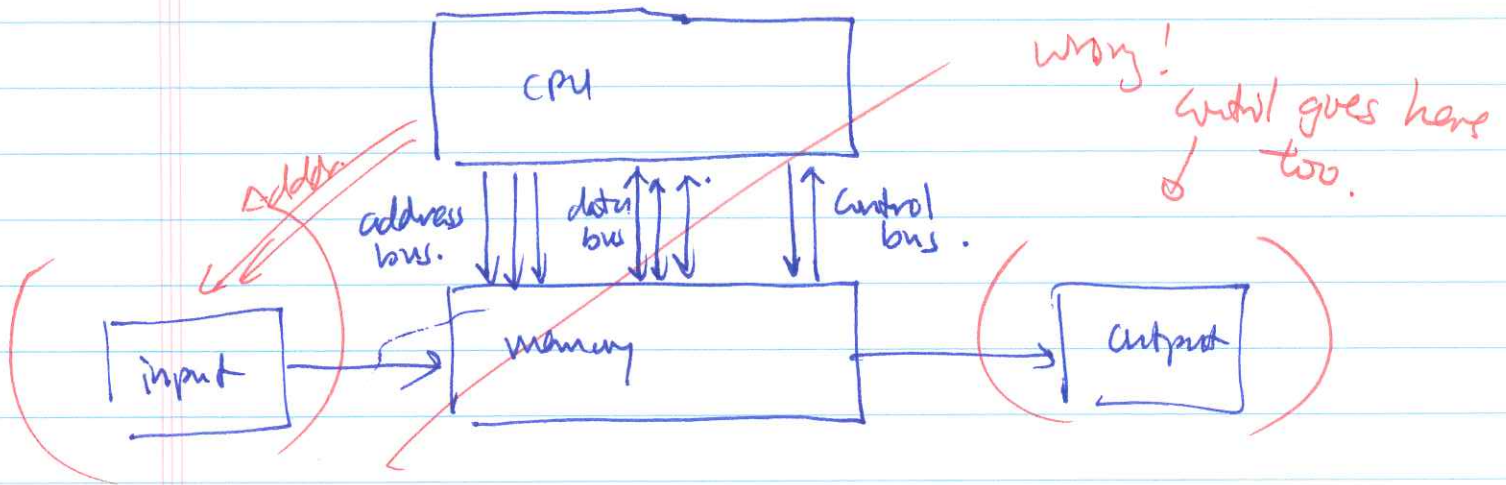 CPU
wrong!
control goes here
too.
Addr.
address
bus.
data
bus
control
bus.
input
memory
output